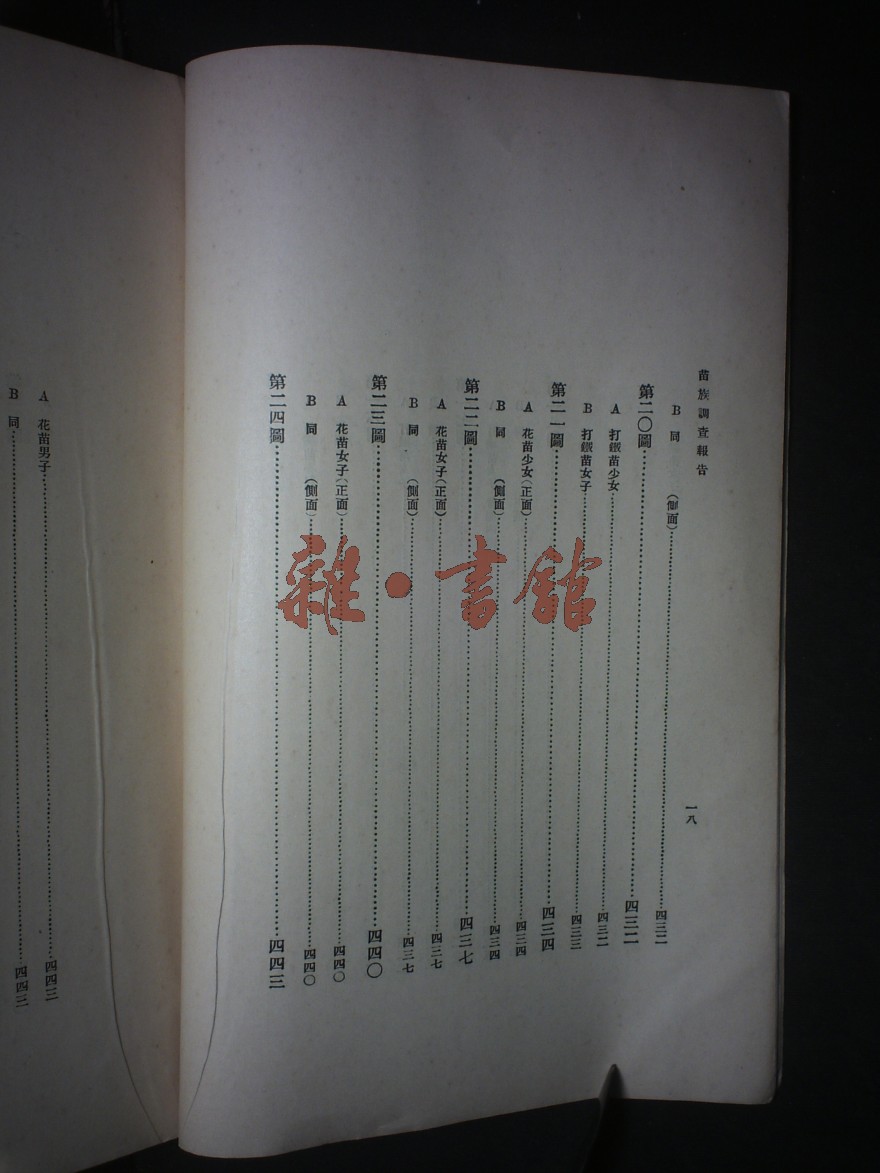 苗族調查報告
一八
B 同 (側面)……四三二
第二〇圖……四三二
A 打鐵苗少女……四三二
B 打鐵苗女子……四三三
第二一圖……四三四
A 花苗少女(正面)……四三四
B 同 (側面)……四三四
第二二圖……四三七
A 花苗女子(正面)……四三七
B 同 (側面)……四三七
第二三圖……四四〇
A 花苗女子(正面)……四四〇
B 同 (側面)……四四〇
第二四圖……四四三
A 花苗男子……四四三
B 同……四四三
雜·書館